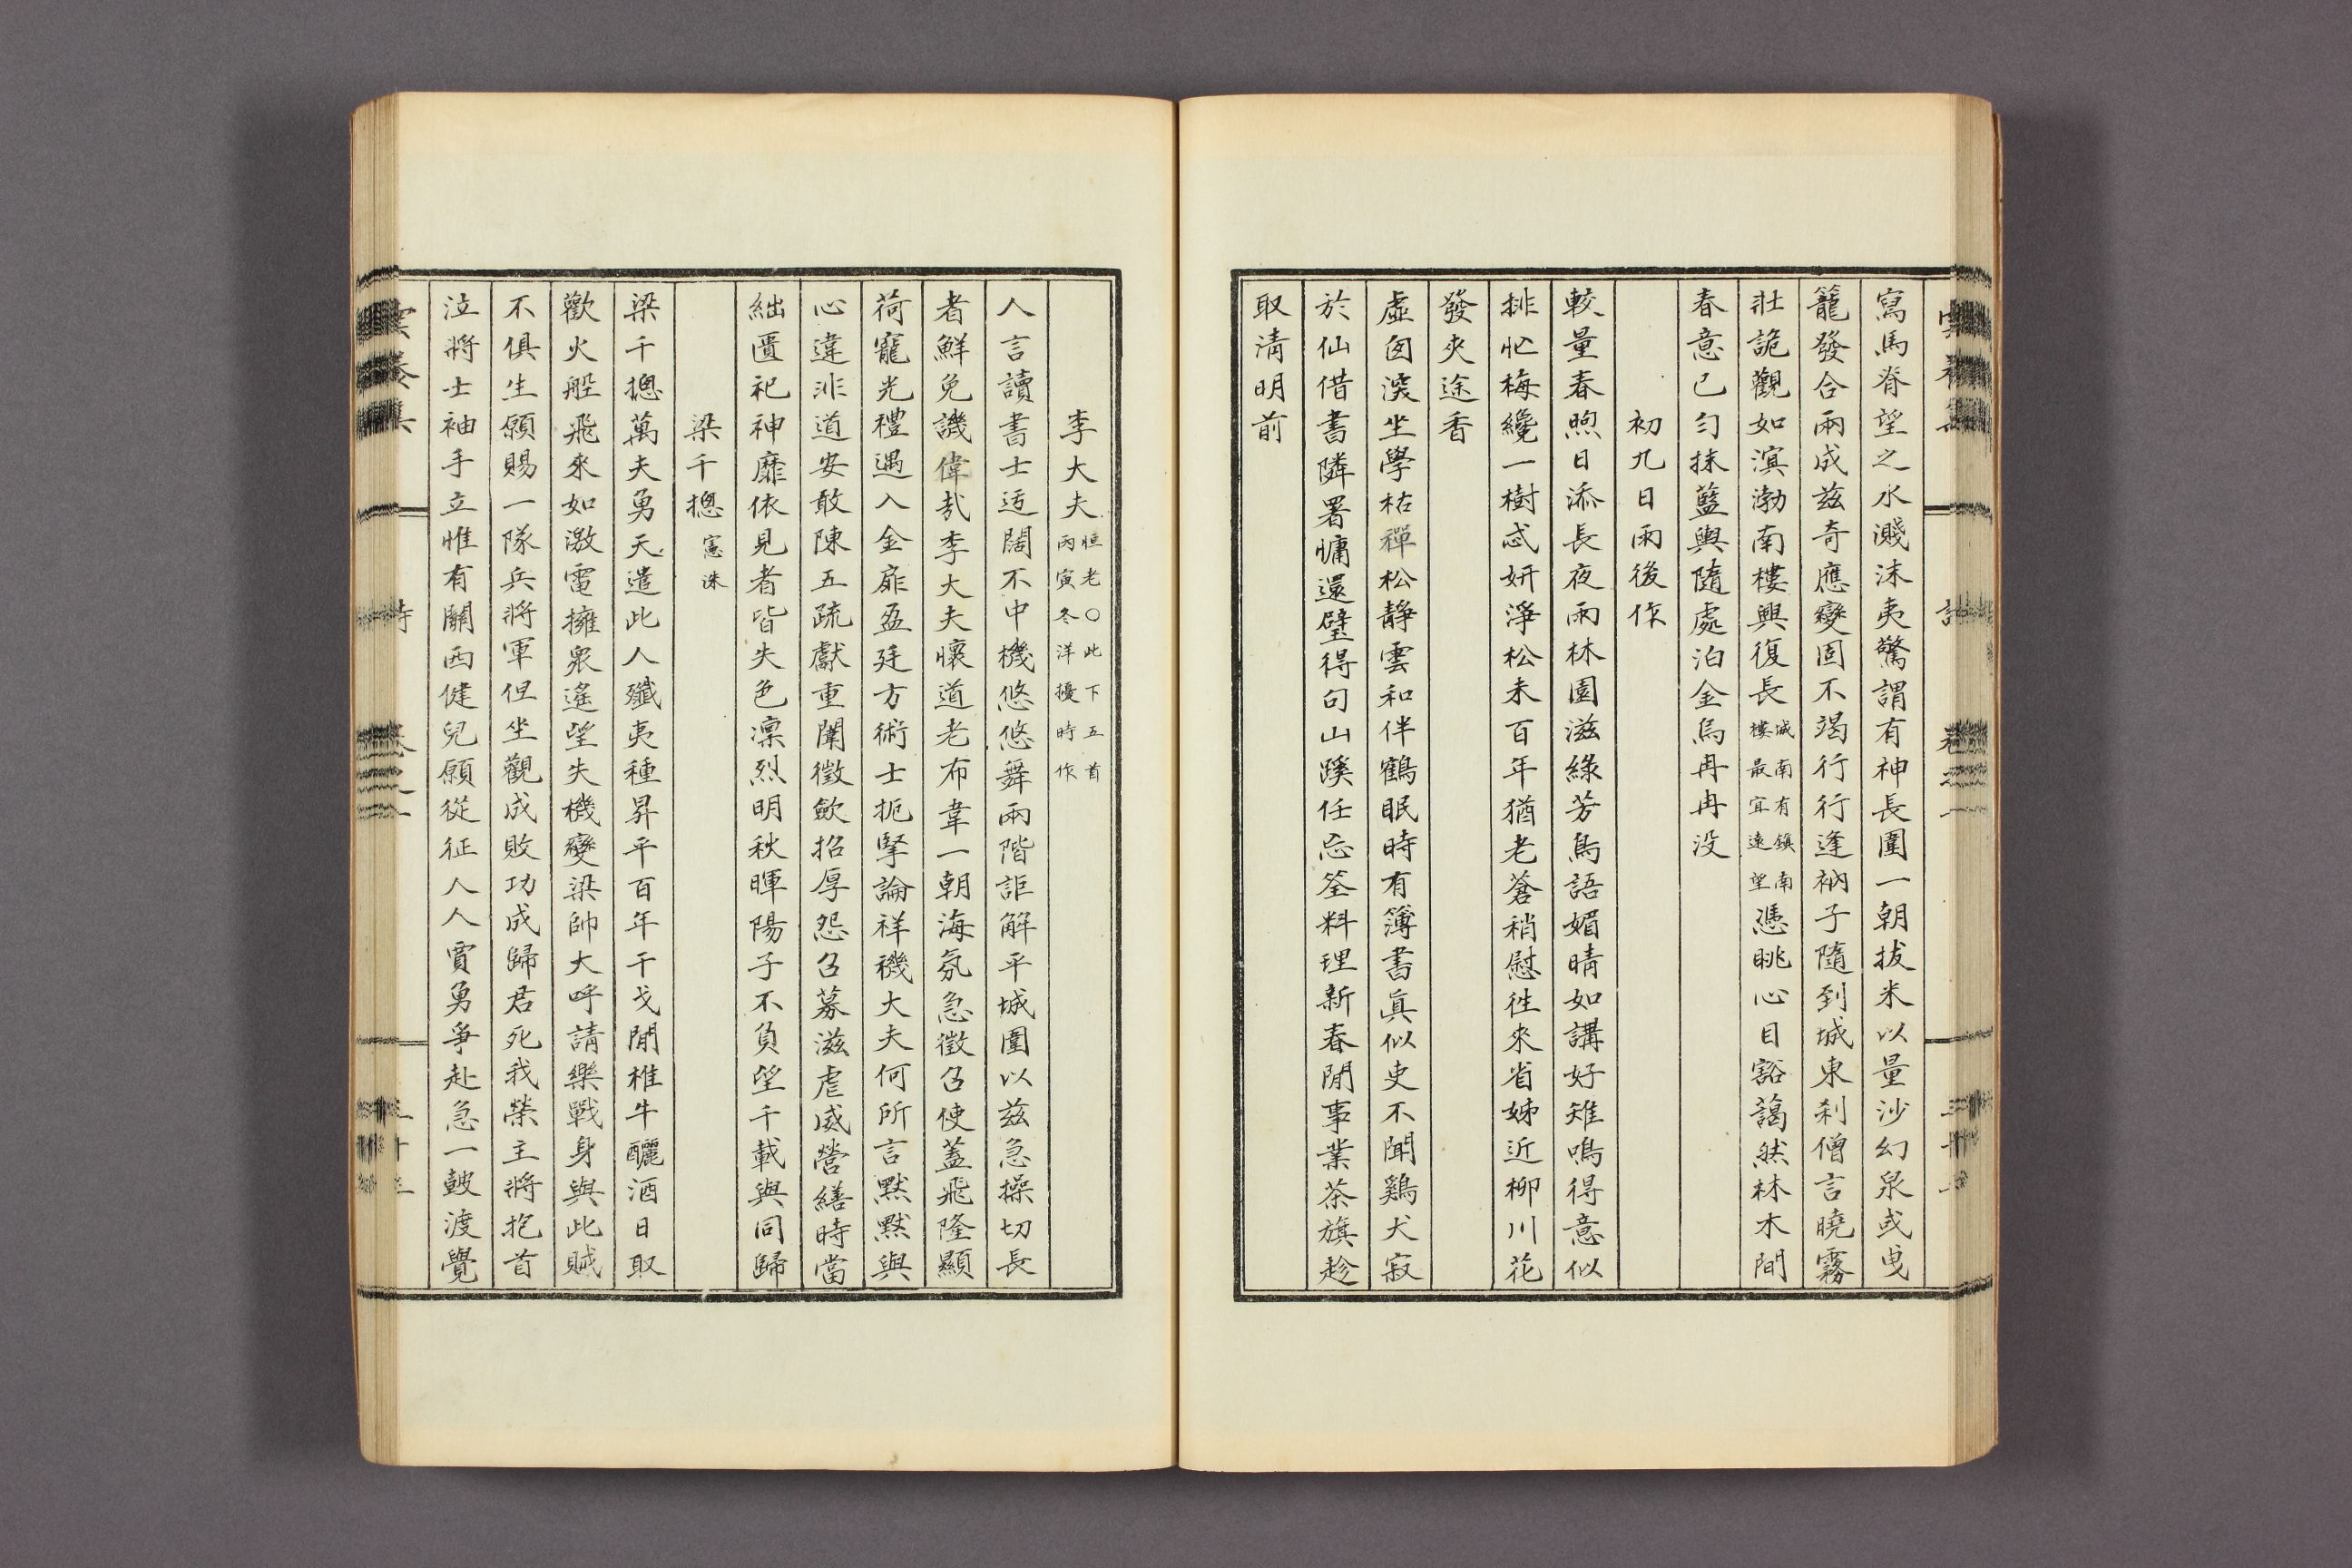 寫馬脊望之水濺沫夷驚謂有神長圍一朝拔米以量沙幻泉或曳
籠發合兩成玆奇應變固不竭行行逢衲子隨到城東刹僧言曉霧
壯詭觀如溟渤南樓興復長城南有鎭南樓最宜遠望憑眺心目豁藹然林木間
春意已勻抹藍輿隨處泊金烏冉冉沒
初九日雨後作
較量春煦日添長夜雨林園滋綠芳鳥語媚晴如講好雉鳴得意似
排忙梅纔一樹忒姸淨松未百年猶老蒼稍慰徃來省姊近柳川花
發夾途香
虛囱深坐學枯禪松靜雲和伴鶴眠時有簿書眞似吏不聞鷄犬寂
於仙借書隣署慵還璧得句山蹊任忘筌料理新春閒事業茶旗趁
取淸明前
李大夫恒老○此下五首丙寅冬洋擾時作
人言讀書士迃闊不中機悠悠舞兩階詎解平城圍以玆急操切長
者鮮免譏偉哉李大夫懷道老布韋一朝海氛急徵召使蓋飛隆顯
荷寵光禮遇入金扉盈廷方術士扼掔論祥禨大夫何所言默默與
心違非道安敢陳五疏獻重闈徵歛招厚怨召募滋虐威營繕時當
絀匱祀神靡依見者皆失色凜烈明秋暉陽子不負望千載與同歸
梁千摠憲洙
梁千摠萬夫勇天遣此人殲夷種昇平百年干戈閒椎牛釃酒日取
歡火船飛來如激電擁衆遙望失機變梁帥大呼請樂戰身與此賊
不俱生願賜一隊兵將軍但坐觀成敗功成歸君死我榮主將抱首
泣將士袖手立惟有關西健兒願從征人人賈勇爭赴急一皷渡覺